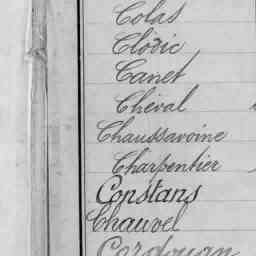 Colas
Clodic
Canet
Chéval
Chaussavoine
Charpentier
Constans
Chauvel
Cordouan